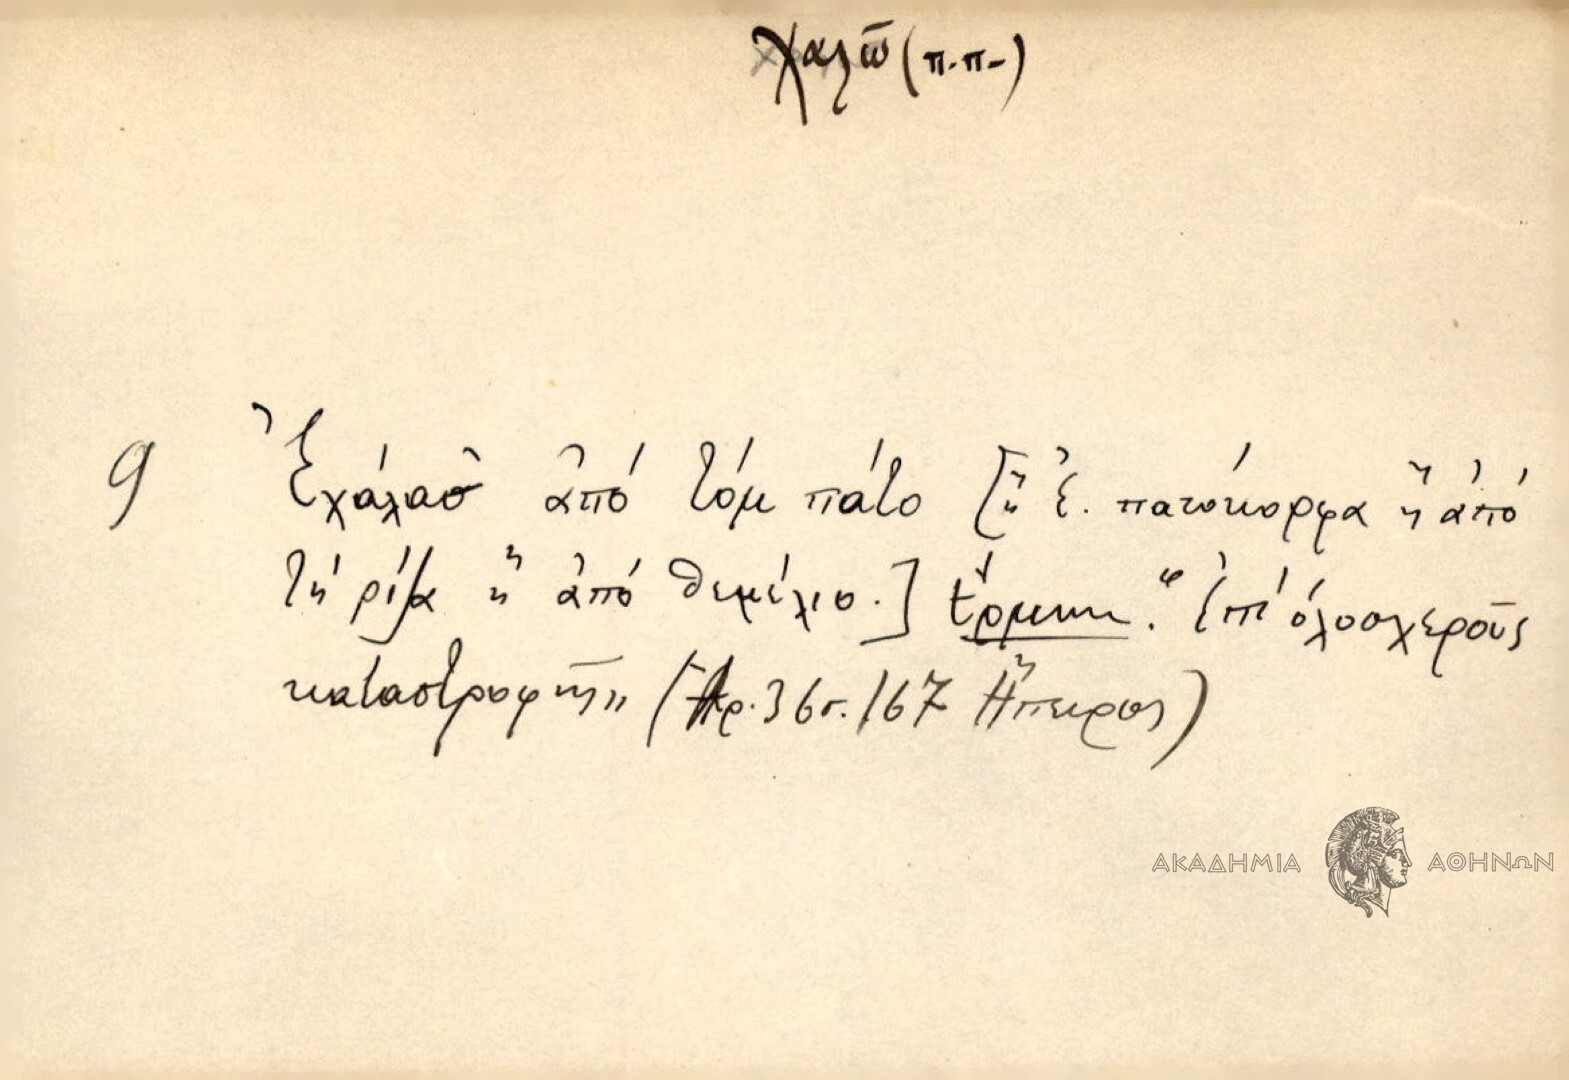 χαλῶ (π.π-)
9 Ἐχάλασ' ἀπό τόμ πάτο [ἤ ἐ. πατόκορφα ἤ ἀπό
τή ρίζα ἤ ἀπό θεμέλιο.] Ἑρμην. "ἐπί ὁλοσχεροῦς
καταστροφῆς,, (Ἀρ. 36 σ. 167 Ἤπειρος)
ΑΚΑΔΗΜΙΑ ΑΘΗΝΩΝ